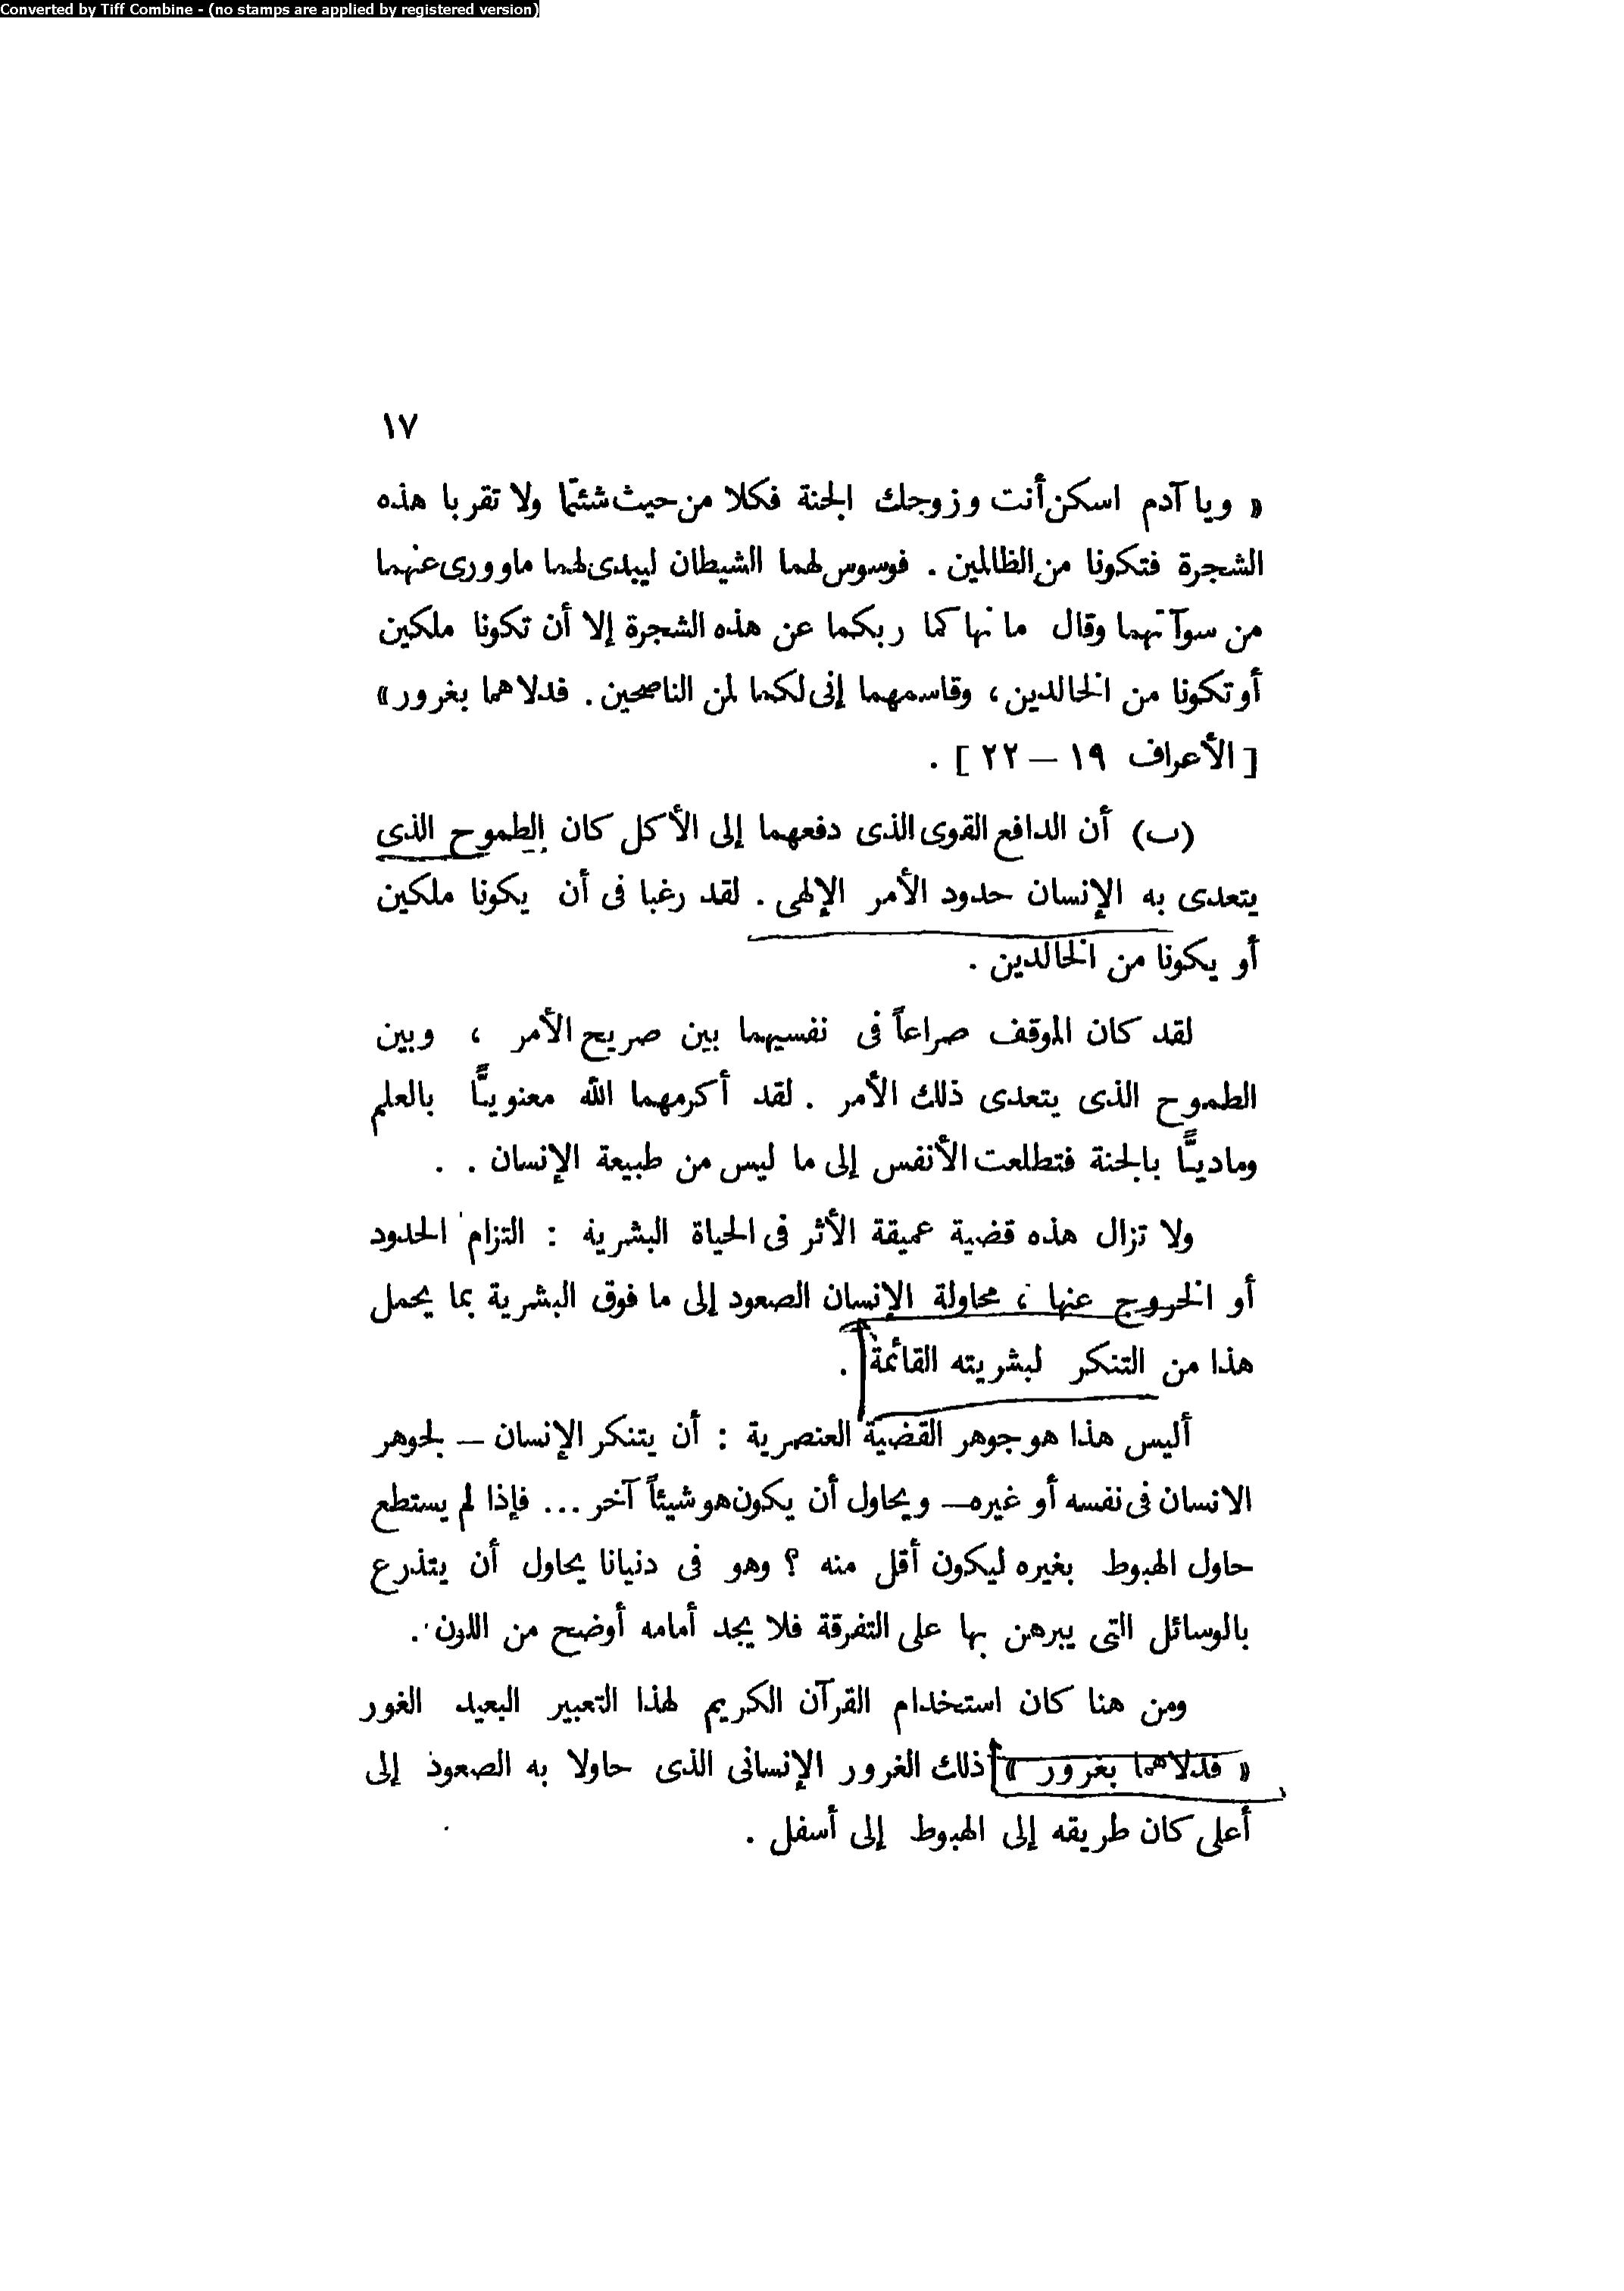 Converted by Tiff Combine - (no stamps are applied by registered version)
١٧
« ويا آدم اسكن أنت وزوجك الجنة فكلا من حيث شئتما ولا تقربا هذه
الشجرة فتكونا من الظالمين . فوسوس لهما الشيطان ليبدى لهما ماوورى عنهما
من سوآتهما وقال ما نهاكما ربكما عن هذه الشجرة إلا أن تكونا ملكين
أو تكونا من الخالدين ، وقاسمهما إنى لكما لمن الناصحين . فدلاهما بغرور »
[ الأعراف ١٩ – ٢٢ ] .
(ب) أن الدافع القوى الذى دفعهما إلى الأكل كان الطموح الذى
يتعدى به الإنسان حدود الأمر الإلهى . لقد رغبا فى أن يكونا ملكين
أو يكونا من الخالدين .
لقد كان الموقف صراعاً فى نفسيهما بين صريح الأمر ، وبين
الطموح الذى يتعدى ذلك الأمر . لقد أكرمهما الله معنويًّا بالعلم
وماديًّا بالجنة فتطلعت الأنفس إلى ما ليس من طبيعة الإنسان . .
ولا تزال هذه قضية عميقة الأثر فى الحياة البشرية : التزام الحدود
أو الخروج عنها ، محاولة الإنسان الصعود إلى ما فوق البشرية بما يحمل
هذا من التنكر لبشريته القائمة .
أليس هذا هو جوهر القضية العنصرية : أن يتنكر الإنسان – لجوهر
الانسان فى نفسه أو غيره – ويحاول أن يكون هو شيئاً آخر ... فإذا لم يستطع
حاول الهبوط بغيره ليكون أقل منه ؟ وهو فى دنيانا يحاول أن يتذرع
بالوسائل التى يبرهن بها على التفرقة فلا يجد أمامه أوضح من اللون .
ومن هنا كان استخدام القرآن الكريم لهذا التعبير البعيد الغور
« فدلاهما بغرور » ذلك الغرور الإنسانى الذى حاولا به الصعود إلى
أعلى كان طريقه إلى الهبوط إلى أسفل .